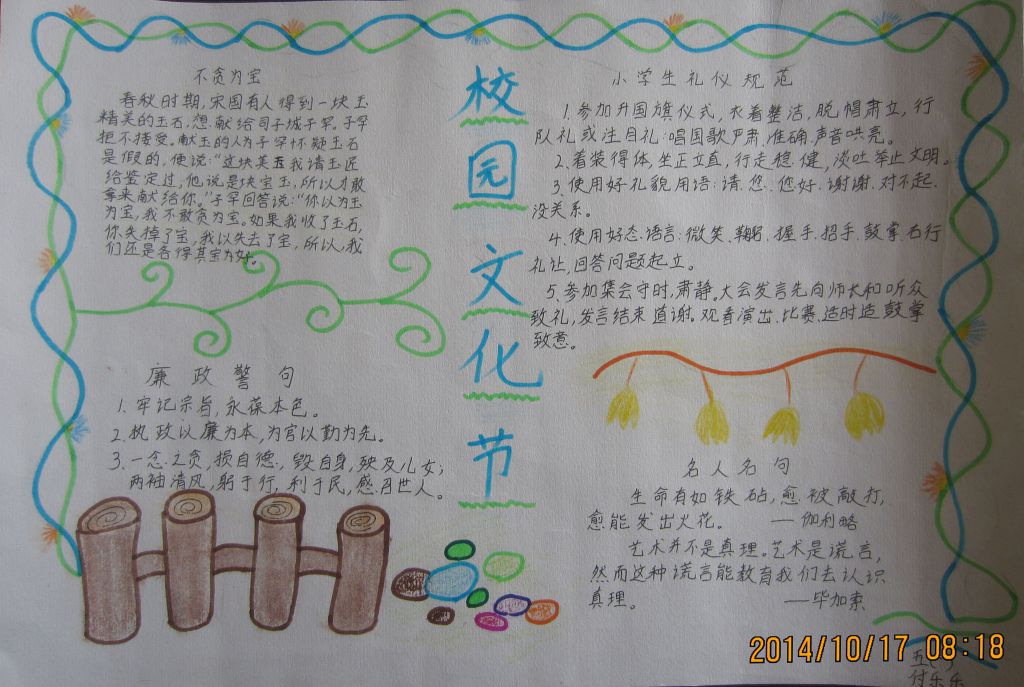 校园文化节
不贪为宝
春秋时期,宋国有人得到一块玉
精美的玉石,想献给司子城子罕。子罕
拒不接受。献玉的人为子罕怀疑玉石
是假的,便说:“这块美玉我请玉匠
给鉴定过,他说是块宝玉,所以才敢
拿来献给你。”子罕回答说:“你以为玉
为宝,我不敢贪为宝。如果我收了玉石,
你失掉了宝,我以失去了宝,所以,我
们还是各得其宝为好。
廉政警句
1、牢记宗旨,永葆本色。
2、执政以廉为本,为官以勤为先。
3、一念之贪,损自德,毁自身,殃及儿女;
两袖清风,躬于行,利于民,感召世人。
小学生礼仪规范
1.参加升国旗仪式,衣着整洁,脱帽肃立,行
队礼或注目礼:唱国歌严肃、准确、声音哄亮。
2、着装得体,坐正立直,行走稳健,淡吐举止文明。
3、使用好礼貌用语:请、您、您好、谢谢、对不起、
没关系。
4、使用好态语言:微笑、鞠躬、握手、招手、鼓掌右行
礼让,回答问题起立。
5、参加集会守时,肃静。大会发言先向师长和听众
致礼,发言结束道谢。观看演出、比赛、适时造鼓掌
致意。
名人名句
生命有如铁砧,愈被敲打,
愈能发出火花。 ——伽利略
艺术并不是真理。艺术是谎言,
然而这种谎言能教育我们去认识
真理。 ——毕加索
五(1)
付乐乐
2014/10/17 08:18